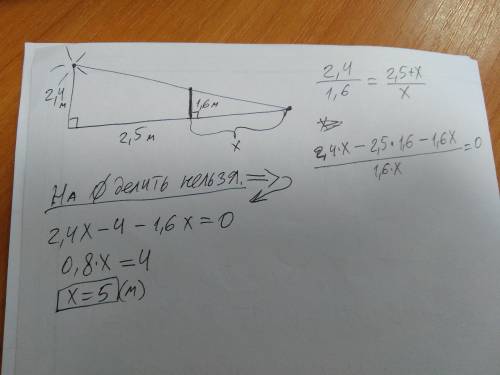 2,4 м
1,6 м
2,5 м
x
2,4/1,6 = (2,5+x)/x
(2,4·x − 2,5·1,6 − 1,6x)/(1,6·x) = 0
На 0 делить нельзя. =>
2,4x − 4 − 1,6x = 0
0,8·x = 4
x = 5 (м)